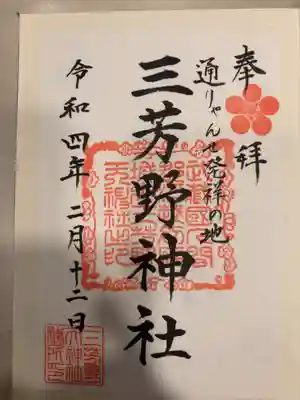 奉拝
通りゃんせ発祥の地
三芳野神社
令和四年二月十二日